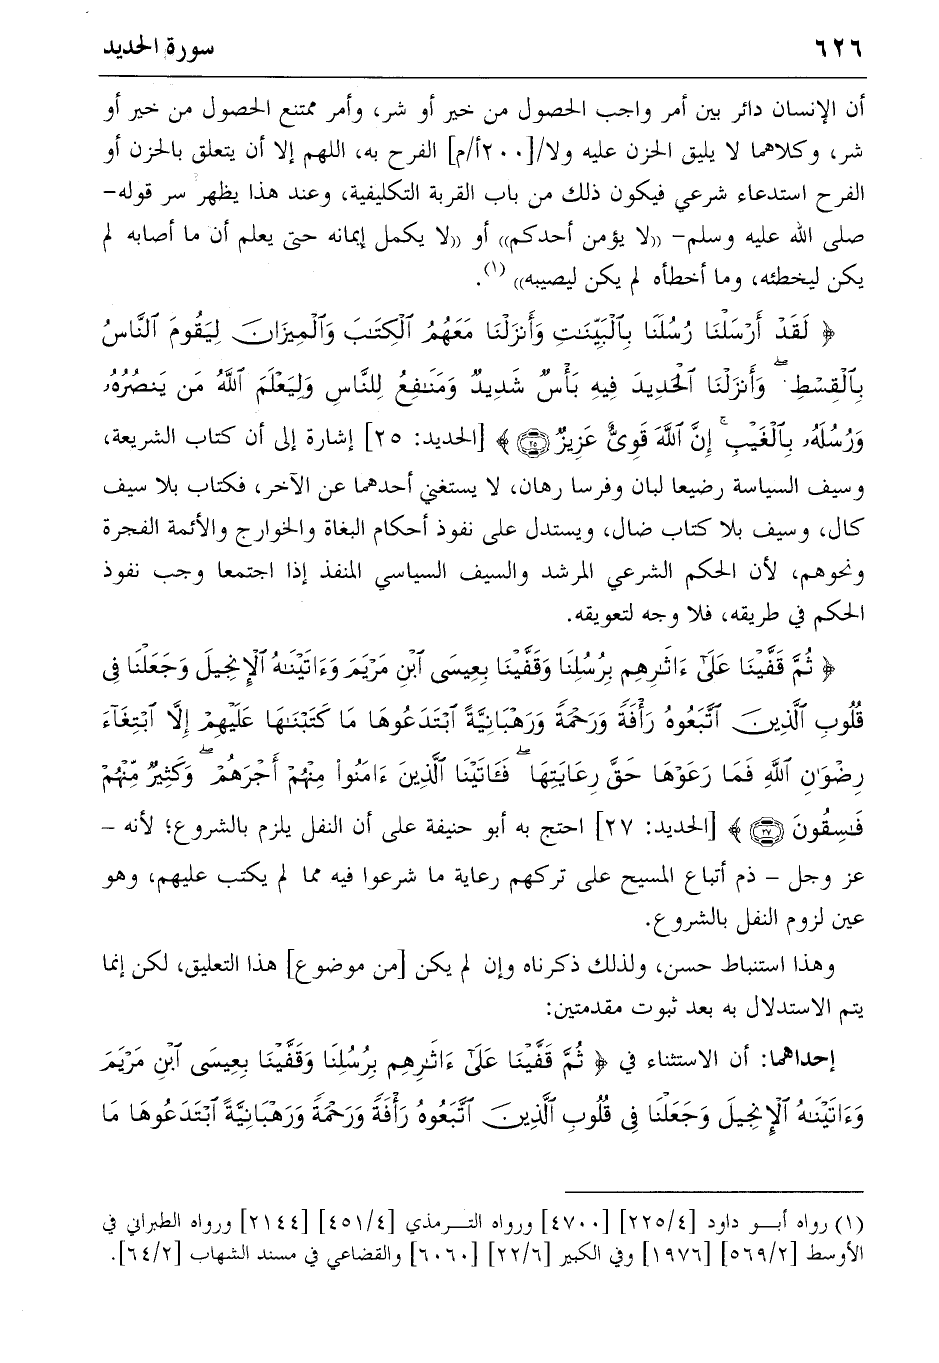 ٦٢٦ سورة الحديد
أن الإنسان دائر بين أمر واجب الحصول من خير أو شر، وأمر ممتنع الحصول من خير أو
شر، وكلاهما لا يليق الحزن عليه ولا/[٢٠٠أ/م] الفرح به، اللهم إلا أن يتعلق بالحزن أو
الفرح استدعاء شرعي فيكون ذلك من باب القربة التكليفية، وعند هذا يظهر سر قوله-
صلى الله عليه وسلم- ((لا يؤمن أحدكم)) أو ((لا يكمل إيمانه حتى يعلم أن ما أصابه لم
يكن ليخطئه، وما أخطأه لم يكن ليصيبه)) (١).
﴿ لَقَدْ أَرْسَلْنَا رُسُلَنَا بِٱلْبَيِّنَٰتِ وَأَنزَلْنَا مَعَهُمُ ٱلْكِتَٰبَ وَٱلْمِيزَانَ لِيَقُومَ ٱلنَّاسُ
بِٱلْقِسْطِ ۖ وَأَنزَلْنَا ٱلْحَدِيدَ فِيهِ بَأْسٌ شَدِيدٌ وَمَنَٰفِعُ لِلنَّاسِ وَلِيَعْلَمَ ٱللَّهُ مَن يَنصُرُهُۥ
وَرُسُلَهُۥ بِٱلْغَيْبِ ۚ إِنَّ ٱللَّهَ قَوِىٌّ عَزِيزٌ ۝٢٥ ﴾ [الحديد: ٢٥] إشارة إلى أن كتاب الشريعة،
وسيف السياسة رضيعا لبان وفرسا رهان، لا يستغني أحدهما عن الآخر، فكتاب بلا سيف
كال، وسيف بلا كتاب ضال، ويستدل على نفوذ أحكام البغاة والخوارج والأئمة الفجرة
ونحوهم، لأن الحكم الشرعي المرشد والسيف السياسي المنفذ إذا اجتمعا وجب نفوذ
الحكم في طريقه، فلا وجه لتعويقه.
﴿ ثُمَّ قَفَّيْنَا عَلَىٰٓ ءَاثَٰرِهِم بِرُسُلِنَا وَقَفَّيْنَا بِعِيسَى ٱبْنِ مَرْيَمَ وَءَاتَيْنَٰهُ ٱلْإِنجِيلَ وَجَعَلْنَا فِى
قُلُوبِ ٱلَّذِينَ ٱتَّبَعُوهُ رَأْفَةً وَرَحْمَةً وَرَهْبَانِيَّةً ٱبْتَدَعُوهَا مَا كَتَبْنَٰهَا عَلَيْهِمْ إِلَّا ٱبْتِغَآءَ
رِضْوَٰنِ ٱللَّهِ فَمَا رَعَوْهَا حَقَّ رِعَايَتِهَا ۖ فَـَٔاتَيْنَا ٱلَّذِينَ ءَامَنُوا۟ مِنْهُمْ أَجْرَهُمْ ۖ وَكَثِيرٌ مِّنْهُمْ
فَٰسِقُونَ ۝٢٧ ﴾ [الحديد: ٢٧] احتج به أبو حنيفة على أن النفل يلزم بالشروع؛ لأنه -
عز وجل - ذم أتباع المسيح على تركهم رعاية ما شرعوا فيه مما لم يكتب عليهم، وهو
عين لزوم النفل بالشروع.
وهذا استنباط حسن، ولذلك ذكرناه وإن لم يكن [من موضوع] هذا التعليق، لكن إنما
يتم الاستدلال به بعد ثبوت مقدمتين:
إحداهما: أن الاستثناء في ﴿ ثُمَّ قَفَّيْنَا عَلَىٰٓ ءَاثَٰرِهِم بِرُسُلِنَا وَقَفَّيْنَا بِعِيسَى ٱبْنِ مَرْيَمَ
وَءَاتَيْنَٰهُ ٱلْإِنجِيلَ وَجَعَلْنَا فِى قُلُوبِ ٱلَّذِينَ ٱتَّبَعُوهُ رَأْفَةً وَرَحْمَةً وَرَهْبَانِيَّةً ٱبْتَدَعُوهَا مَا
(١) رواه أبــو داود [٢٢٥/٤] [٤٧٠٠] ورواه التــرمذي [٤٥١/٤] [٢١٤٤] ورواه الطبراني في
الأوسط [٥٦٩/٢] [١٩٧٦] وفي الكبير [٢٢/٦] [٦٠٦٠] والقضاعي في مسند الشهاب [٦٤/٢].